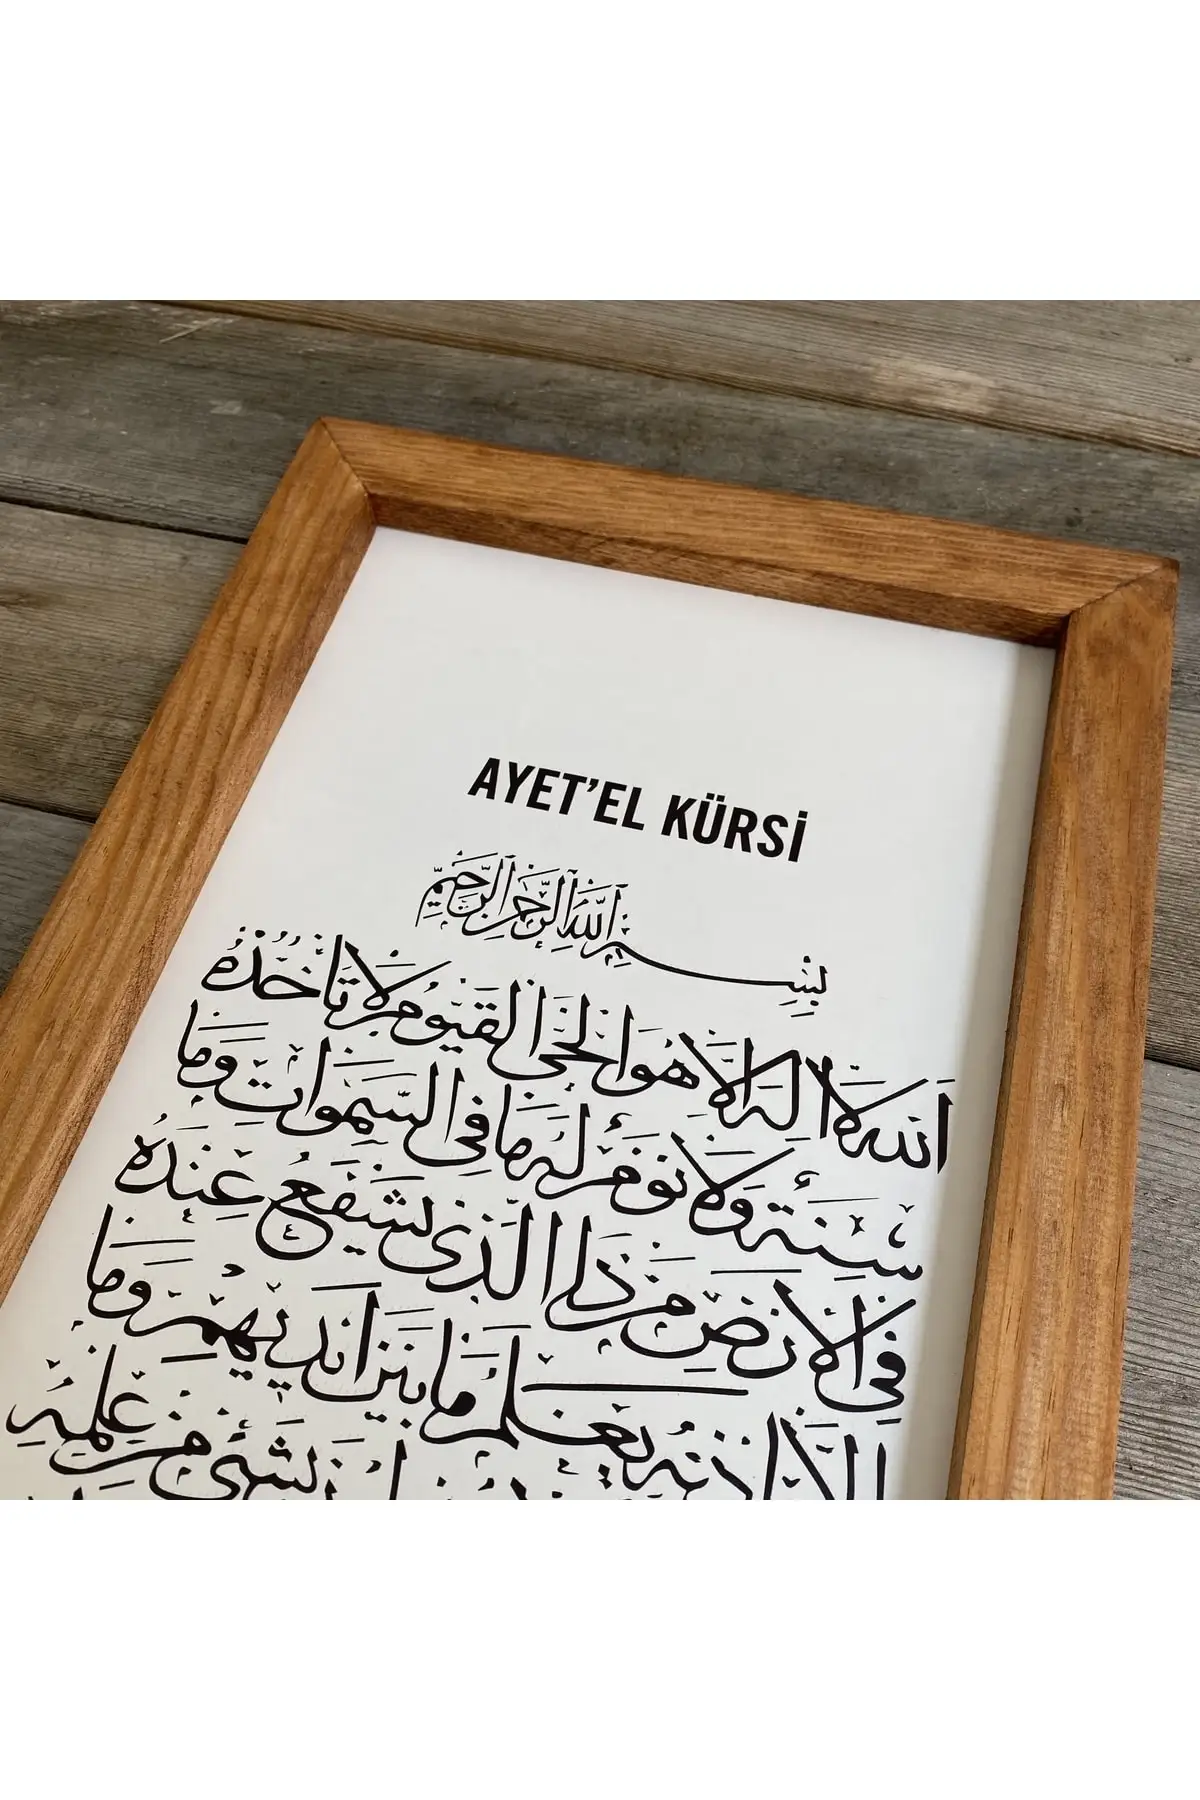 AYET'EL KÜRSİ
بِسْمِ اللَّهِ الرَّحْمَنِ الرَّحِيمِ
اَللهُ لَا اِلٰهَ اِلَّا هُوَ الْحَيُّ الْقَيُّومُ لَا تَأْخُذُهُ
سِنَةٌ وَلَا نَوْمٌ لَهُ مَا فِي السَّمٰوَاتِ وَمَا
فِي الْاَرْضِ مَنْ ذَا الَّذِي يَشْفَعُ عِنْدَهُ
اِلَّا بِاِذْنِهِ يَعْلَمُ مَا بَيْنَ اَيْدِيهِمْ وَمَا
بِشَيْءٍ مِنْ عِلْمِهِ